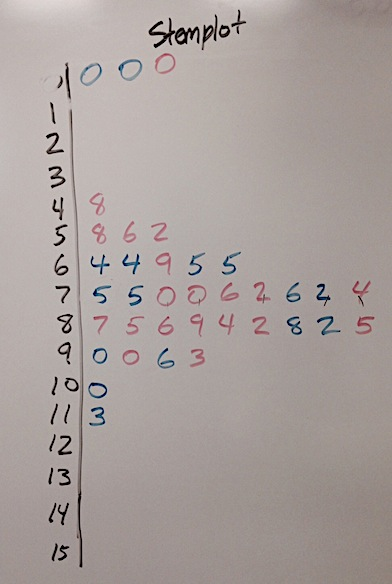 Stemplot
0 0 0
1
2
3
4 8
5 8 6 2
6 4 4 9 5 5
7 5 5 0 0 6 2 6 2 4
8 7 5 6 9 4 2 8 2 5
9 0 0 6 3
10 0
11 3
12
13
14
15